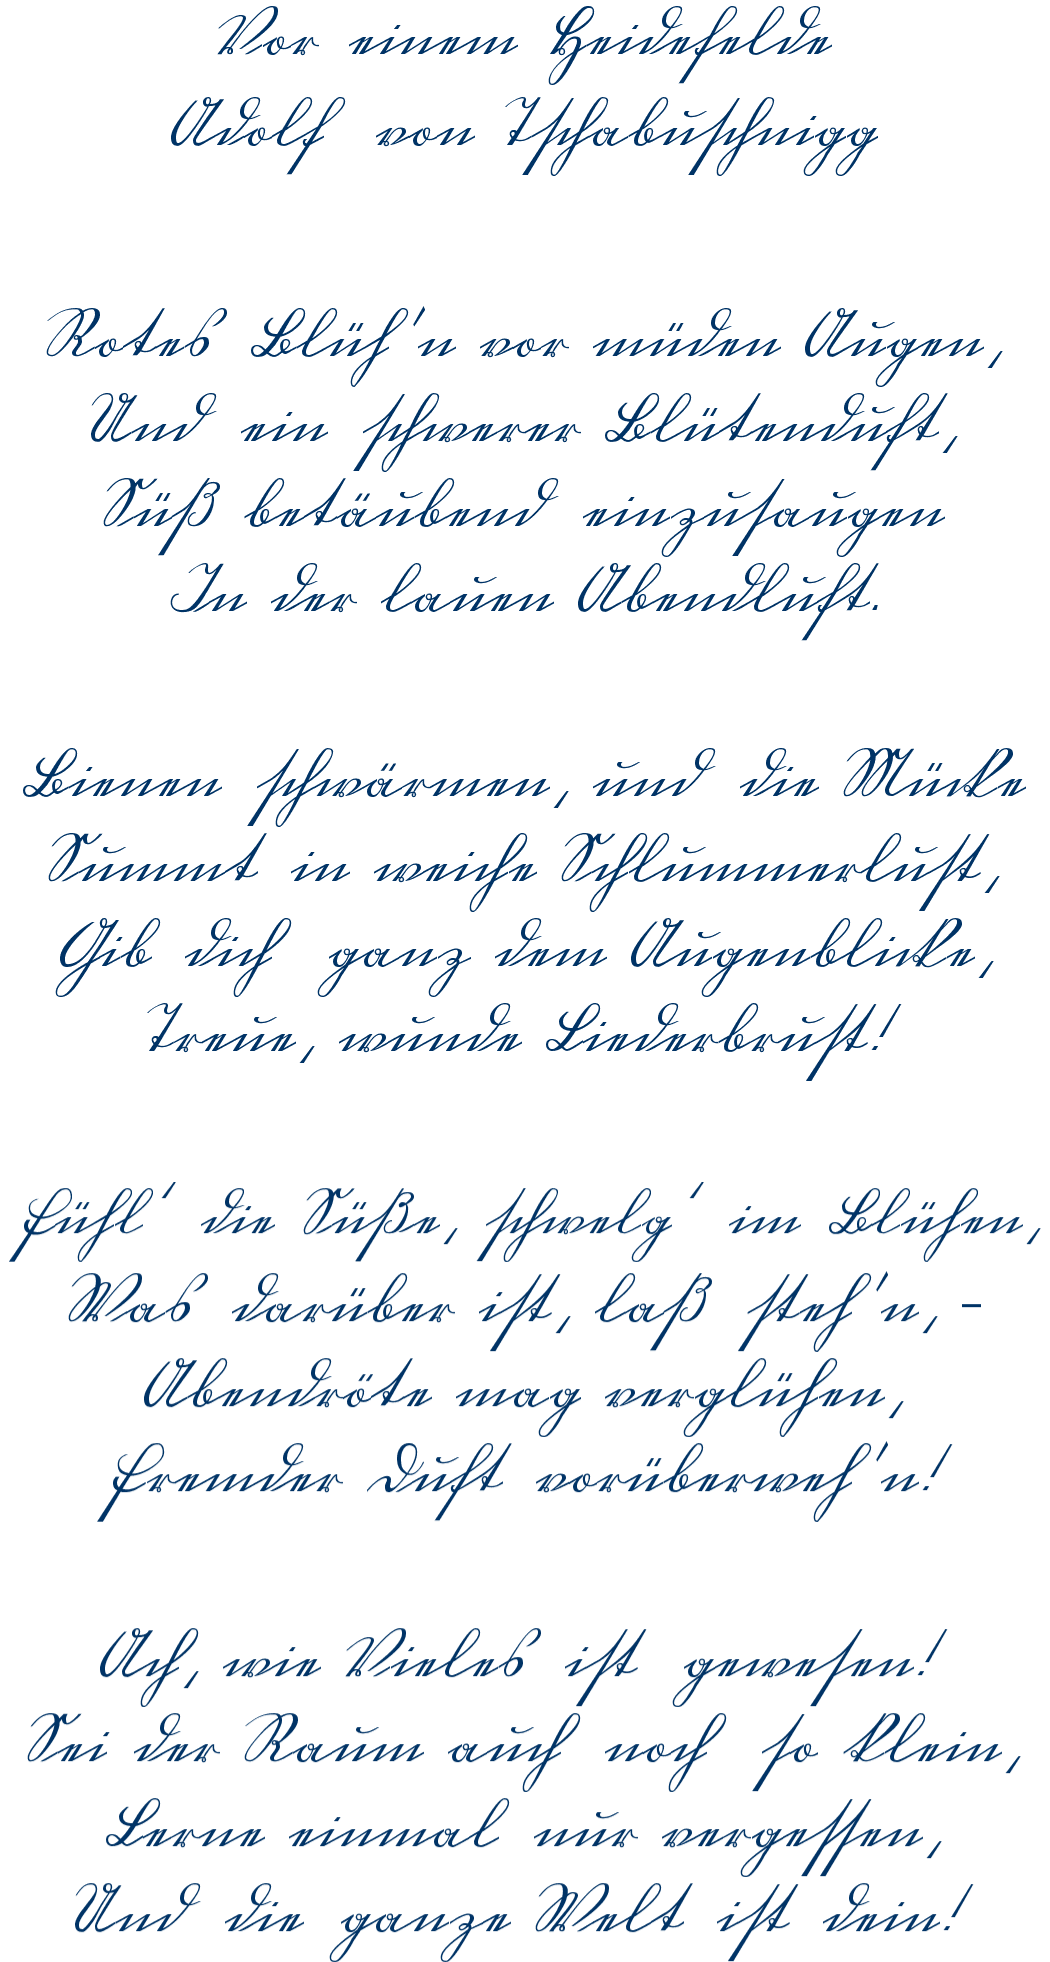 Vor einem Heidefelde
Adolf von Tschabuschnigg
Rotes Blüh'n vor müden Augen,
Und ein schwerer Blütenduft,
Süß betäubend einzusaugen
In der lauen Abendluft.
Bienen schwärmen, und die Mücke
Summt in weiche Schlummerlust,
Gib dich ganz dem Augenblicke,
Treue, wunde Liederbrust!
Fühl' die Süße, schwelg' im Blühen,
Was darüber ist, laß steh'n, -
Abendröte mag verglühen,
Fremder Duft vorüberweh'n!
Ach, wie Vieles ist gewesen!
Sei der Raum auch noch so klein,
Lerne einmal nur vergessen,
Und die ganze Welt ist dein!